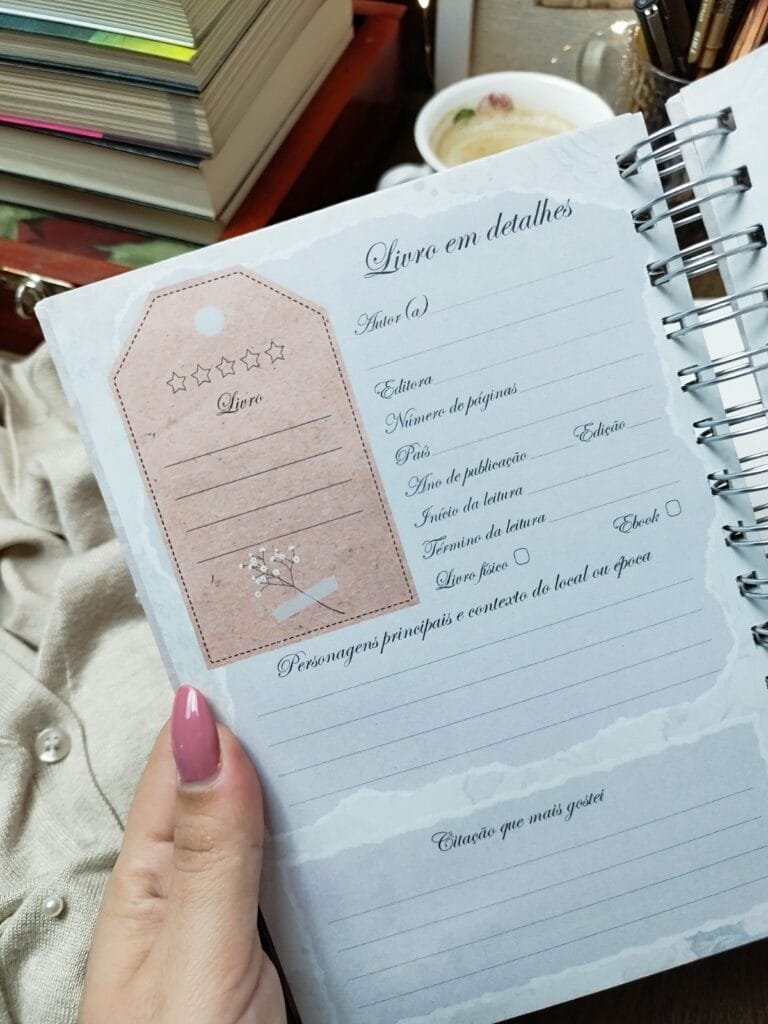 Livro em detalhes
Livro
Autor (a)
Editora
Número de páginas
País
Ano de publicação Edição
Início da leitura
Término da leitura
Livro físico Ebook
Personagens principais e contexto do local ou época
Citação que mais gostei